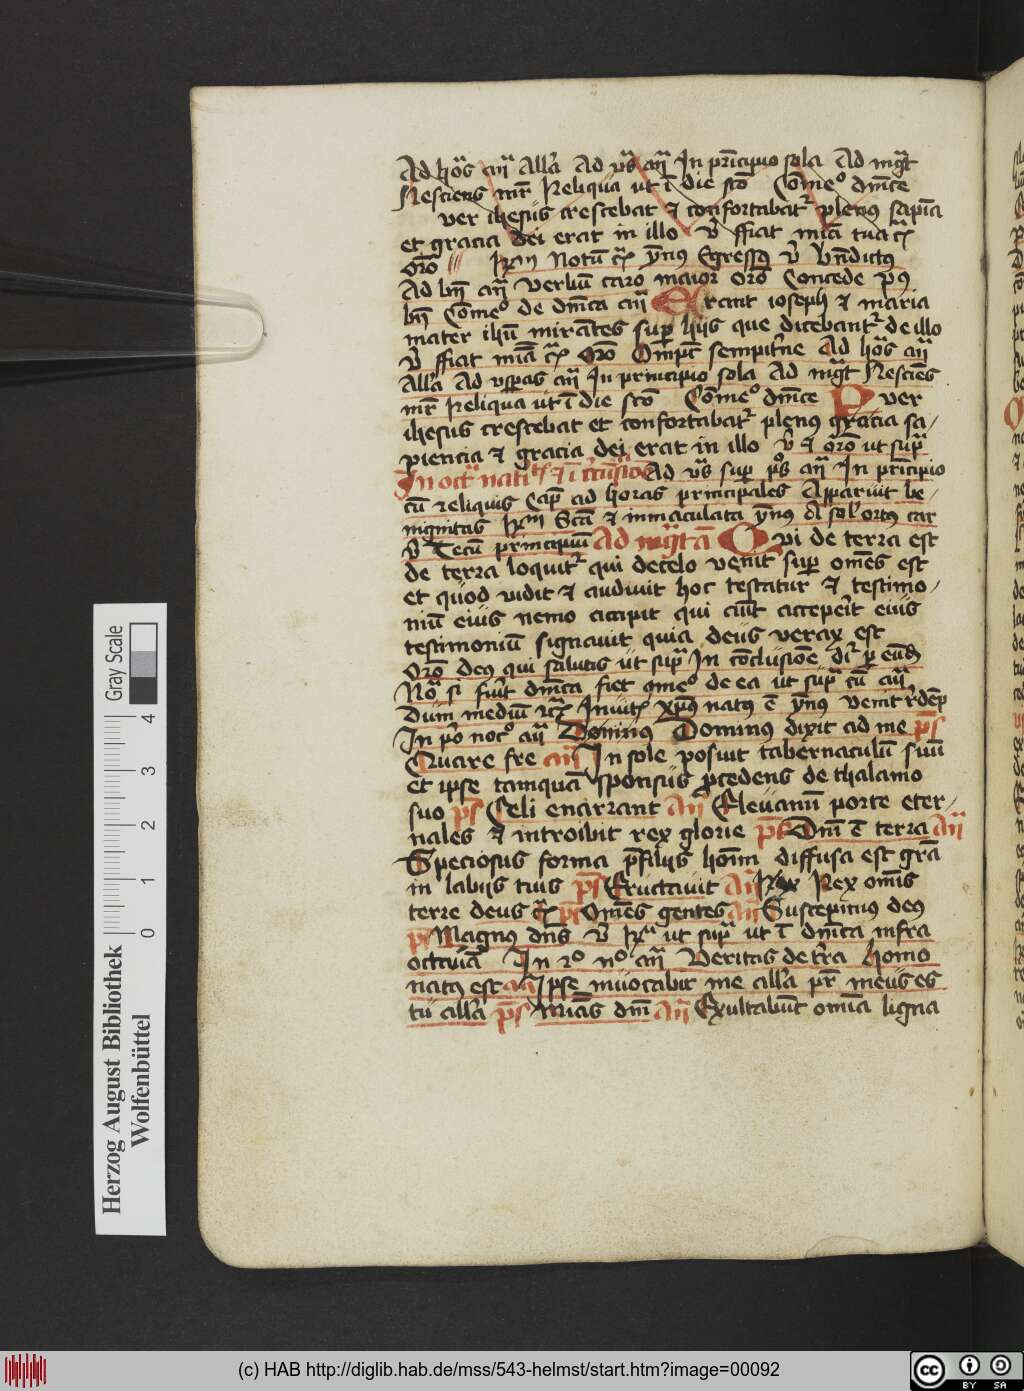 Ad ho͛s an̄ Alla Ad ve͛s an̄ In principio sola Ad mg̅t
Nesciens mr̄ Reliqua ut ī die sct̄o Cōmeo dn̄ice
uer ihesus crescebat et confortabatr plenus sapīa
et gracia dei erat in illo v̄ ffiat mīa tua etc̄
Orō Notū etc̄ ymus Egressus v̄ bn̄dictus
Ad bn̄ an̄ verbū caro maior orō Concede
bn̄ Cōmeo de dn̄ica an̄ Erant ioseph et maria
mater ihū mirātes super hiis que dicebantr de illo
v̄ ffiat mīa etc̄ Orō Omp̄t sempitne Ad ho͛s an̄
Alla Ad vesperas an̄ In principio sola Ad mg̅t Nesciēs
mr̄ Reliqua ut ī die sct̄o Cōmeo dn̄ice Puer
ihesus crescebat et confortabatr plenus gracia sa/
piencia et gracia dei erat in illo v̄ et orō ut supra
In octa natītis et ī cīcūsīōe Ad ve͛s super ps̄ an̄ In principio
cū reliquis Capm ad horas principales Apparuit be/
nignitas Rm Scā et inmaculata ymus A sol ortus car
v̄ Tecū principiū Ad mg̅tā Qui de terra est
de terra loquitr qui de celo venit super omēs est
et quod vidit et audiuit hoc testatur et testimo/
niū eius nemo accipit qui aūt acceperit eius
testimoniū signauit quia deus verax est
Orō deus qui salutis ut supra In cōclusiōe dr̄ per eūd
Noa si fuīt dn̄ica fiet cōmeo de ea ut supra cū an̄
Dum mediū etc̄ Inuitm xp̄us natus ē ymus venit rēdēp
In po nocto an̄ Dominus Dominus dixit ad me ps̄
Quare fre an̄ In sole posuit tabernaculū suū
et ipse tamquā sponsus procedens de thalamo
suo ps̄ Celi enarrant an̄ Eleuaminī porte eter/
nales et introibit rex glorie ps̄ Dn̄i ē terra an̄
Speciosus forma p̄ filiis hoīm diffusa est grā
in labiis tuis ps̄ Eructauit an̄ Rex Rex omīs
terre deus etc̄ ps̄ Omēs gentes an̄ Suscepimus deus
ps̄ Magnus dn̄s v̄ Ra ut supra ut ī dn̄ica infra
octauā In 2o no an̄ Veritas de tr̄a homo
natus est an̄ Ipse inuocabit me alla pr̄ meus es
tu alla ps̄ Mīas dn̄i an̄ Exultabūt omīa ligna
Herzog August Bibliothek
Wolfenbüttel
Gray Scale
0 1 2 3 4
(c) HAB http://diglib.hab.de/mss/543-helmst/start.htm?image=00092
cc BY SA